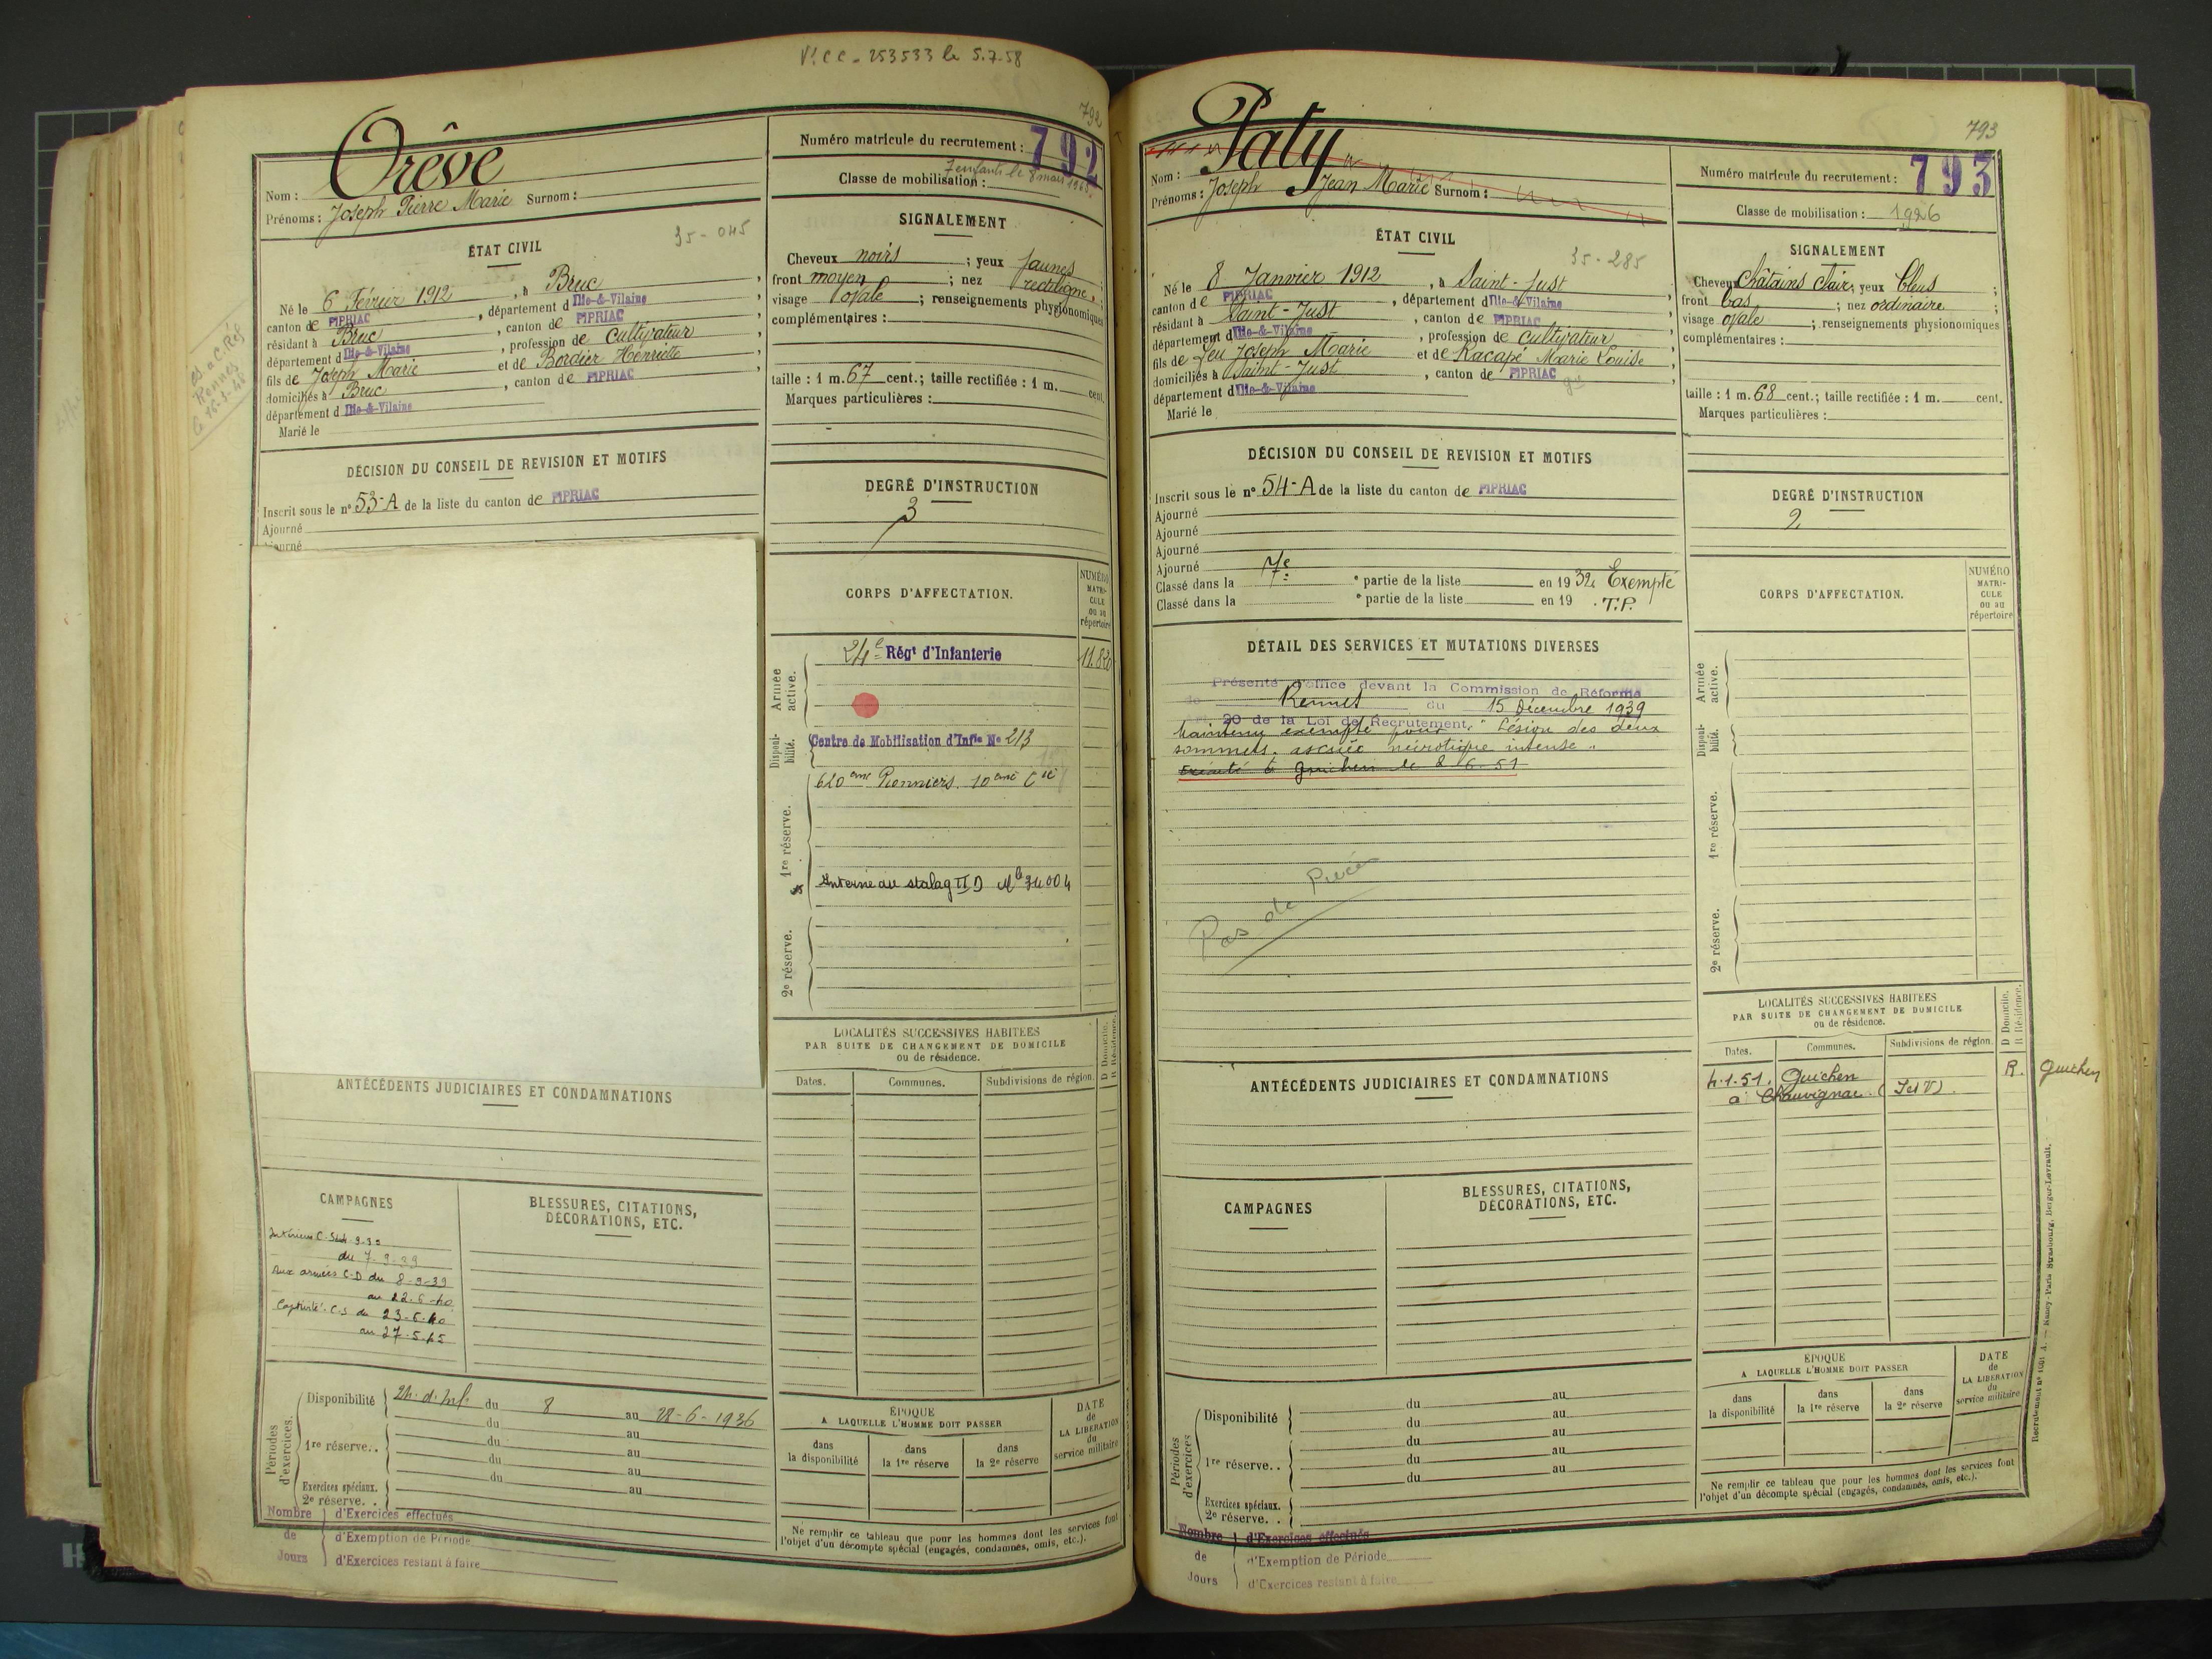 V! C C - 253533 le 5.7.58
792
Orêve
Nom :
Prénoms : Joseph Pierre Marie Surnom :
Numéro matricule du recrutement : 792
7 enfants le 8 mars 196
Classe de mobilisation :
ÉTAT CIVIL
35-045
Né le 6 Février 1912, à Bruc,
canton de PIPRIAC, département d Ille-&-Vilaine
résidant à Bruc, canton de PIPRIAC
département d Ille-&-Vilaine, profession de cultivateur,
fils de Joseph Marie et de Bordier Henriette
domiciliés à Bruc, canton de PIPRIAC,
département d Ille-&-Vilaine
Marié le
Rennes
SIGNALEMENT
Cheveux noirs ; yeux jaunes ;
front moyen ; nez rectiligne ;
visage ovale ; renseignements physionomiques
complémentaires :
taille : 1 m. 67 cent.; taille rectifiée : 1 m. cent.
Marques particulières :
DÉCISION DU CONSEIL DE REVISION ET MOTIFS
Inscrit sous le n° 53-A de la liste du canton de PIPRIAC
Ajourné
Ajourné
DEGRÉ D'INSTRUCTION
3
CORPS D'AFFECTATION.
NUMÉRO
MATRI-
CULE
ou au
répertoire
Armée active.
24e Régt d'Infanterie
Disponi-bilité.
Centre de Mobilisation d'Infie N° 213
1re réserve.
620eme Pionniers. 10eme Cie
Interné au stalag II D Mle 34004
2e réserve.
LOCALITÉS SUCCESSIVES HABITÉES
PAR SUITE DE CHANGEMENT DE DOMICILE
ou de résidence.
D Domicile.
R Résidence.
Dates. Communes. Subdivisions de région.
ANTÉCÉDENTS JUDICIAIRES ET CONDAMNATIONS
CAMPAGNES
Intérieur C.S 9-39
du 7-9-39
Aux armées C-D du 8-9-39
au 22-6-40
Captivité C.S du 23-6-40
au 27-5-45
BLESSURES, CITATIONS,
DÉCORATIONS, ETC.
Périodes d'exercices.
Disponibilité 24. d'Inf. du 8 au 28-6-1936
du au
1re réserve.. du au
du au
du au
Exercices spéciaux.
2e réserve. . au
Nombre d'Exercices effectués
de d'Exemption de Période
Jours d'Exercices restant à faire
ÉPOQUE
A LAQUELLE L'HOMME DOIT PASSER
dans la disponibilité
dans la 1re réserve
dans la 2e réserve
DATE
de
LA LIBÉRATION
du
service militaire
Ne remplir ce tableau que pour les hommes dont les services font
l'objet d'un décompte spécial (engagés, condamnés, omis, etc.).
793
Paty
Nom :
Prénoms : Joseph Jean Marie Surnom :
Numéro matricule du recrutement : 793
Classe de mobilisation : 1926
ÉTAT CIVIL
35-285
Né le 8 Janvier 1912, à Saint-Just,
canton de PIPRIAC, département d Ille-&-Vilaine
résidant à Saint-Just, canton de PIPRIAC,
département d Ille-&-Vilaine, profession de cultivateur,
fils de feu Joseph Marie et de Racapé Marie Louise
domiciliés à Saint-Just, canton de PIPRIAC
département d Ille-&-Vilaine
Marié le
SIGNALEMENT
Cheveux châtains clair; yeux bleus ;
front bas ; nez ordinaire ;
visage ovale ; renseignements physionomiques
complémentaires :
taille : 1 m. 68 cent.; taille rectifiée : 1 m. cent.
Marques particulières :
DÉCISION DU CONSEIL DE REVISION ET MOTIFS
Inscrit sous le n° 54-A de la liste du canton de PIPRIAC
Ajourné
Ajourné
Ajourné
Ajourné
Classé dans la 7e ° partie de la liste en 1932 Exempté
Classé dans la ° partie de la liste en 19 . T.P.
DEGRÉ D'INSTRUCTION
2
DÉTAIL DES SERVICES ET MUTATIONS DIVERSES
Présenté d'office devant la Commission de Réforme
de Rennes du 15 Décembre 1939
20 de la Loi de Recrutement.
Maintenu exempté pour "Lésion des deux
sommets. intense".
à Guichen le 2-6-51
Pas de Pièce
CORPS D'AFFECTATION.
NUMÉRO
MATRI-
CULE
ou au
répertoire
Armée active.
Disponi-bilité.
1re réserve.
2e réserve.
LOCALITÉS SUCCESSIVES HABITÉES
PAR SUITE DE CHANGEMENT DE DOMICILE
ou de résidence.
D Domicile.
R Résidence.
Dates. Communes. Subdivisions de région.
4.1.51. Guichen R. Guichen
à Chauvignac (I et V)
ANTÉCÉDENTS JUDICIAIRES ET CONDAMNATIONS
CAMPAGNES
BLESSURES, CITATIONS,
DÉCORATIONS, ETC.
Périodes d'exercices
Disponibilité du au
du au
1re réserve. . du au
du au
du au
Exercices spéciaux.
2e réserve. .
Nombre d'Exercices effectués
de d'Exemption de Période
Jours d'Exercices restant à faire
ÉPOQUE
A LAQUELLE L'HOMME DOIT PASSER
dans la disponibilité
dans la 1re réserve
dans la 2e réserve
DATE
de
LA LIBÉRATION
du
service militaire
Ne remplir ce tableau que pour les hommes dont les services font
l'objet d'un décompte spécial (engagés, condamnés, omis, etc.).
Nancy-Paris Strasbourg, Berger-Levrault.